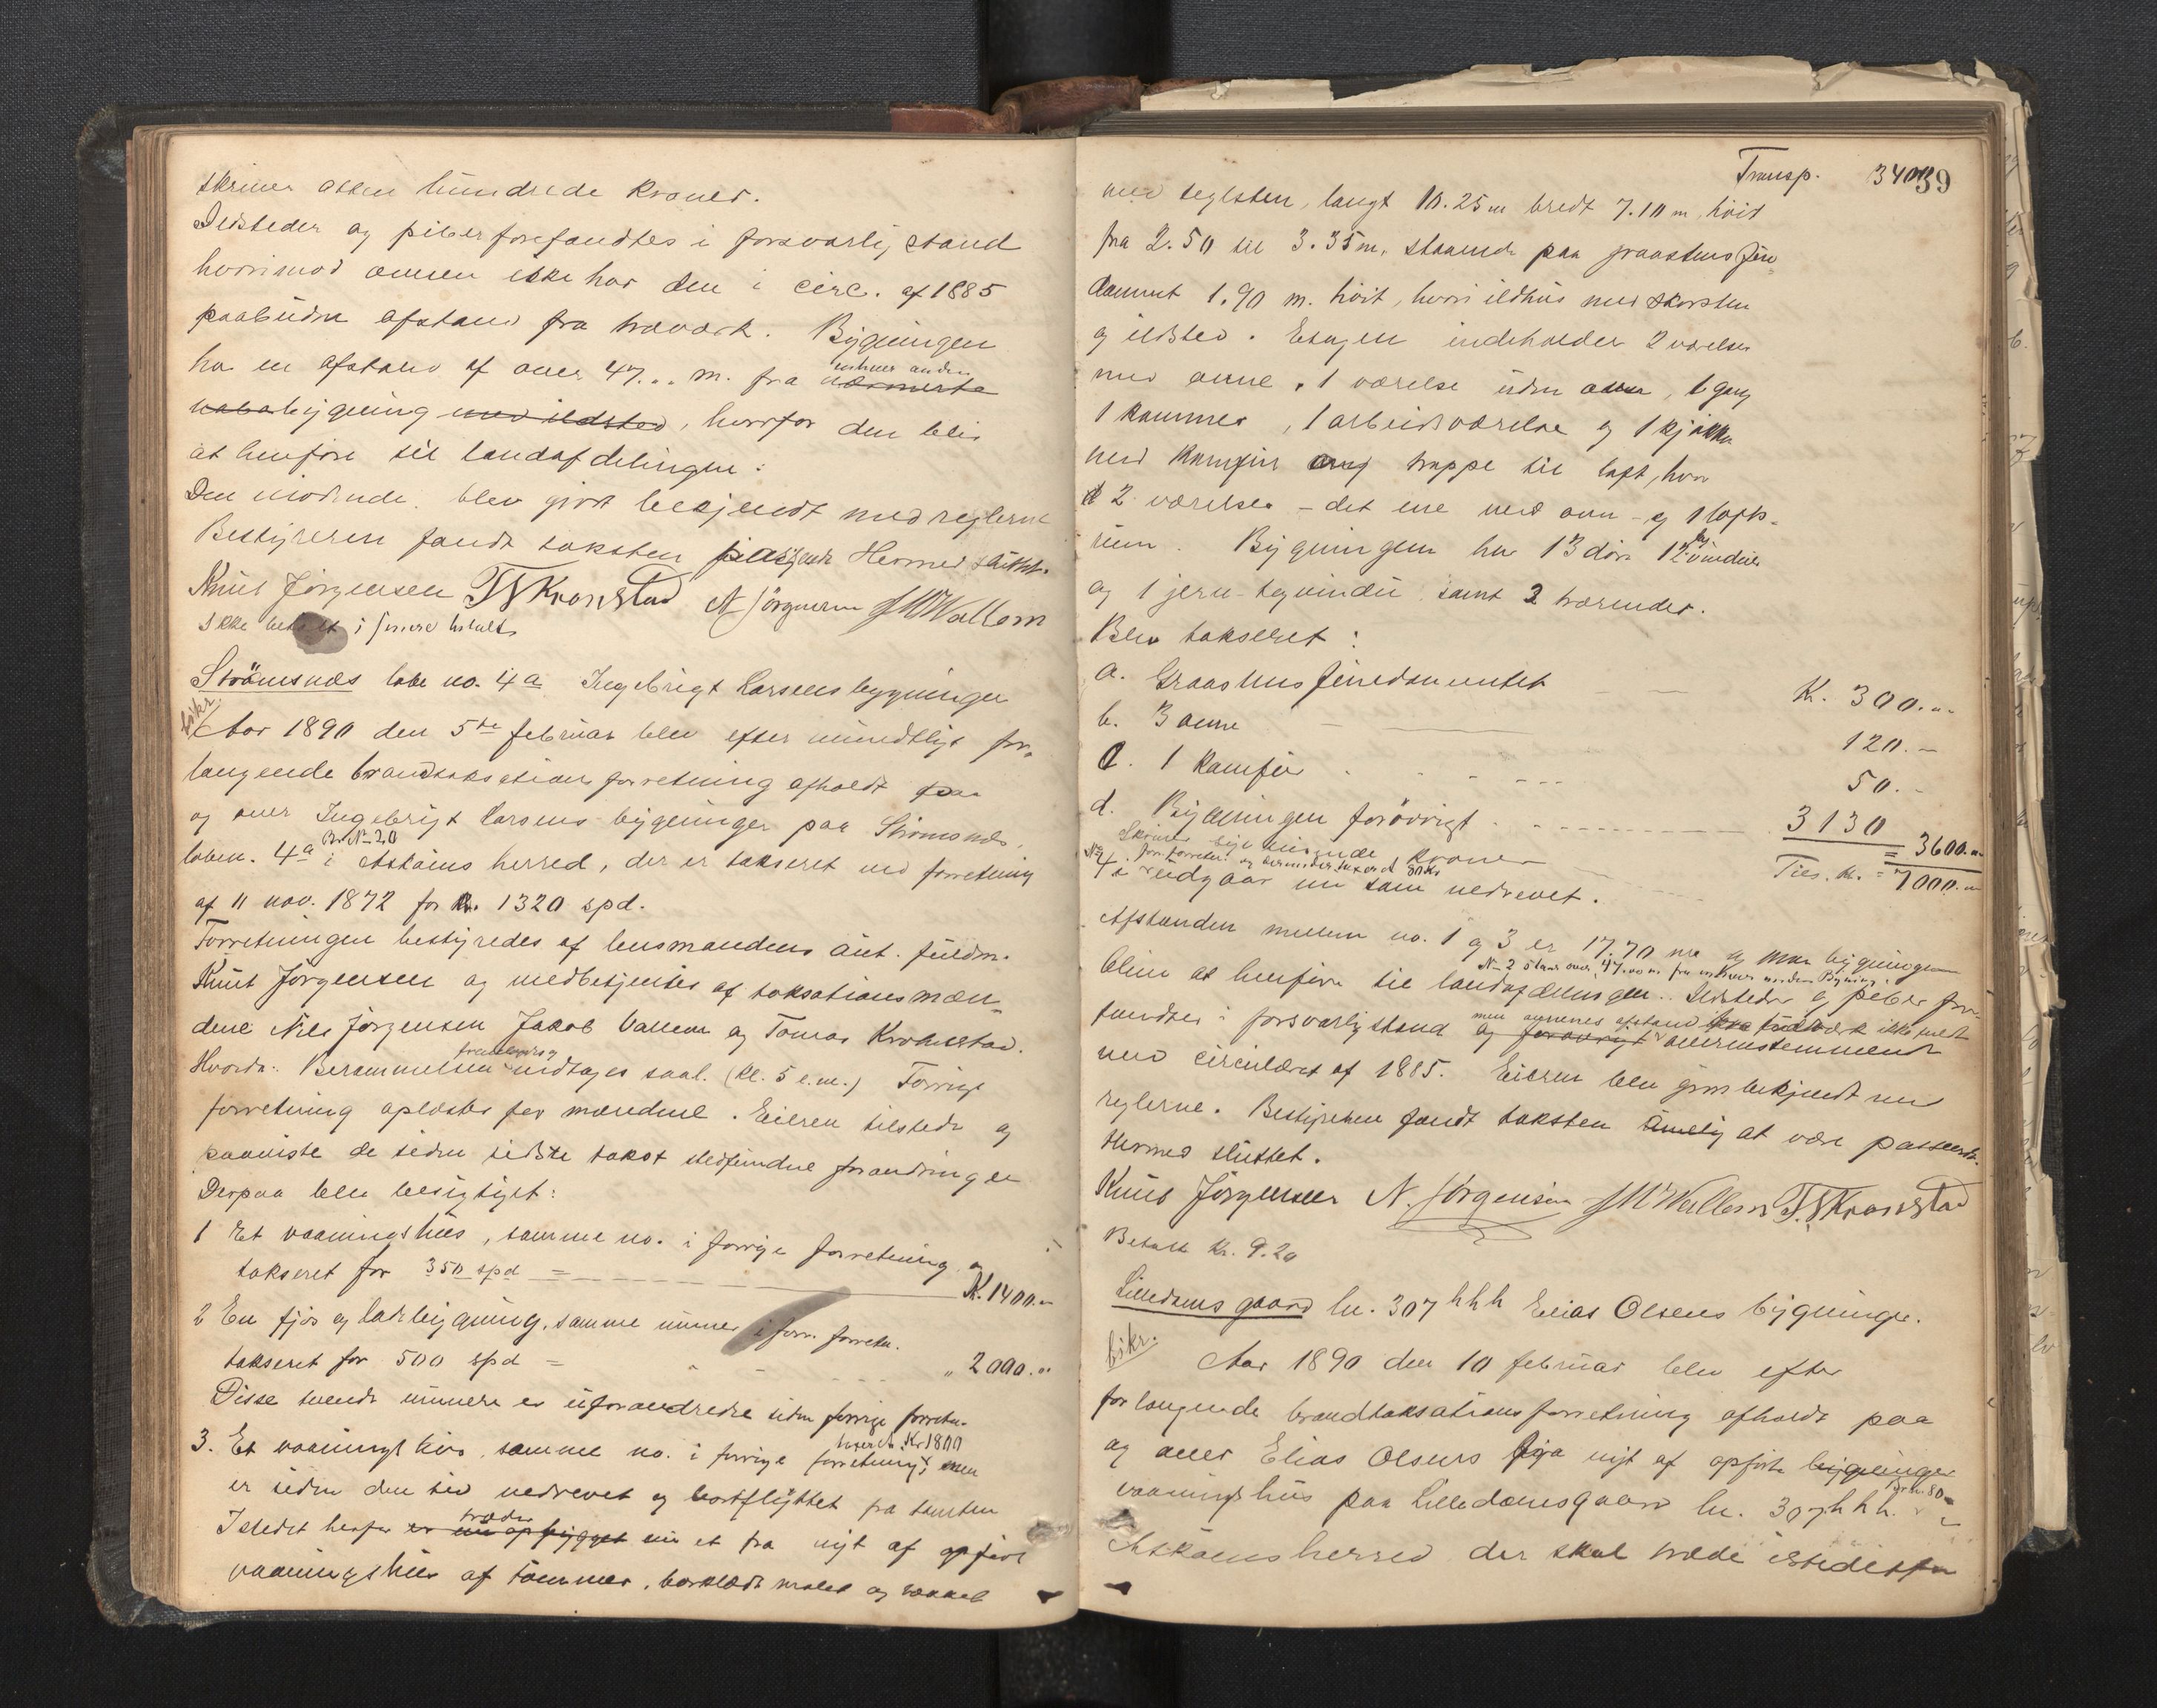 skriver otten hundrede kroner.
Ildsteder og piber forefandtes i forsvarlig stand
hvorimod ovnen ikke har den i circ. af 1885
paabudne afstand fra træværk. Bygningen
har en afstand af over 47.. m. fra enhver anden nærmeste
nabobygning med ildsted, hvorfor den blir
at henføre til landafdelingen.
Den mødende blev gjort bekjendt med reglerne
Bestyreren fandt taksten passende Hermed sluttet.
Knut Jörgensen T S Kronstad N Jörgensen J M Wallem
Ikke betalt i forrere betalt
Strömsnæs løbe no. 4a Ingebrigt Larsens bygninger
tsikr.
Aar 1890 den 5te februar blev efter mundtligt for-
langende brandtaksationsforretning afholdt paa
og over Ingebrigt Larsens bygninger paa Strömsnæs,
Br No 20
løben. 4a i Askøens herred, der er takseret ved forretning
af 11 nov. 1872 for 1320 spd.
Forretningen bestyredes af lensmandens aut. fuldm.
Knut Jørgensen og medbetjentes af taksationsmæn-
dene Nils Jörgensen Jakob Vallem og Tomas Kronstad.
Hvorda: Berammelsen fremlagdes og indtages saal. (Kl. 5 e.m.) Forrige
forretning oplæstes for mændene. Eieren tilstede og
paaviste de siden sidste takst stedfundne forandringer
Derpaa blev besigtiget:
1 Et vaaningshus, samme no. i forrige forretning og
takseret for 350 spd = K. 1400.-
2 En fjøs og ladebygning, samme numer i forr. forretn.
takseret for 500 spd = " 2000.-
Disse tvende numere er uforandrede siden forrige forretn.
3. Et vaaningshus, samme no. i forrige forretning, taxeret Kr 1800 men
er siden den tid nedrevet og bortflyttet fra tomten
Istedet herfor træder er nu opbygget nu et fra nyt af opført
vaaningshus af tömmer, bordklædt malet og tækket
Transp. 3400 39
med teglsten, langt 10.25 m bredt 7.10 m, höit
fra 2.50 til 3.35 m, staaende paa graastens fun-
dament 1.90 m. höit, hvori ildhus med skorsten
og ildsted. Etagen indeholder 2 værelser
med ovne, 1 værelse uden ovn, 1 gang
1 kammer, 1 arbeidsværelse og 1 kjøkken
med komfur og trappe til loft, hvor
2 værelser - det ene med ovn - og 1 lofts-
rum. Bygningen har 13 döre 12 fag vinduer
og 1 jern-tagvindu samt 2 verandaer.
Blev takseret:
a. Graastensfundamentet K. 300.-
b. 3 ovne 120.-
c. 1 Komfur 50.-
d. Bygningen forövrigt 3130 = 3600.-
Skriver syv tusende kroner Tils. kr. = 7000.-
No 4 i forr. forretn. og dermed taxeret 80 kr
udgaar nu som nedrevet.
Afstanden mellem no. 1 og 3 er 17.70 m og bygningerne
No 2 staar over 47.00 m. fra enhver anden Bygning.
blive at henføre til landafdelingen. Ildsteder og piber fore-
fandtes i forsvarlig stand men ovnenes afstand fra træværk ikke helt og forøvrigt overensstemmende
med circulæret af 1885. Eieren blev gjort bekjendt med
reglerne. Bestyreren fandt taksten at være passende.
Hermed sluttet.
Knut Jörgensen N. Jörgensen J M Wallem T. S Kronstad
Betalt Kr. 9.20
Lilledamsgaard ln. 307 hhh Elias Olsens bygninger.
tsikr.
Aar 1890 den 10 februar blev efter
forlangende brandtaksationsforretning afholdt paa
og over Elias Olsens fra nyt af opførte bygninger
vaaningshus paa Lilledamsgaard ln. 307 hhh. Br.n. 80 i
Askøens herred der skal træde istedetfor